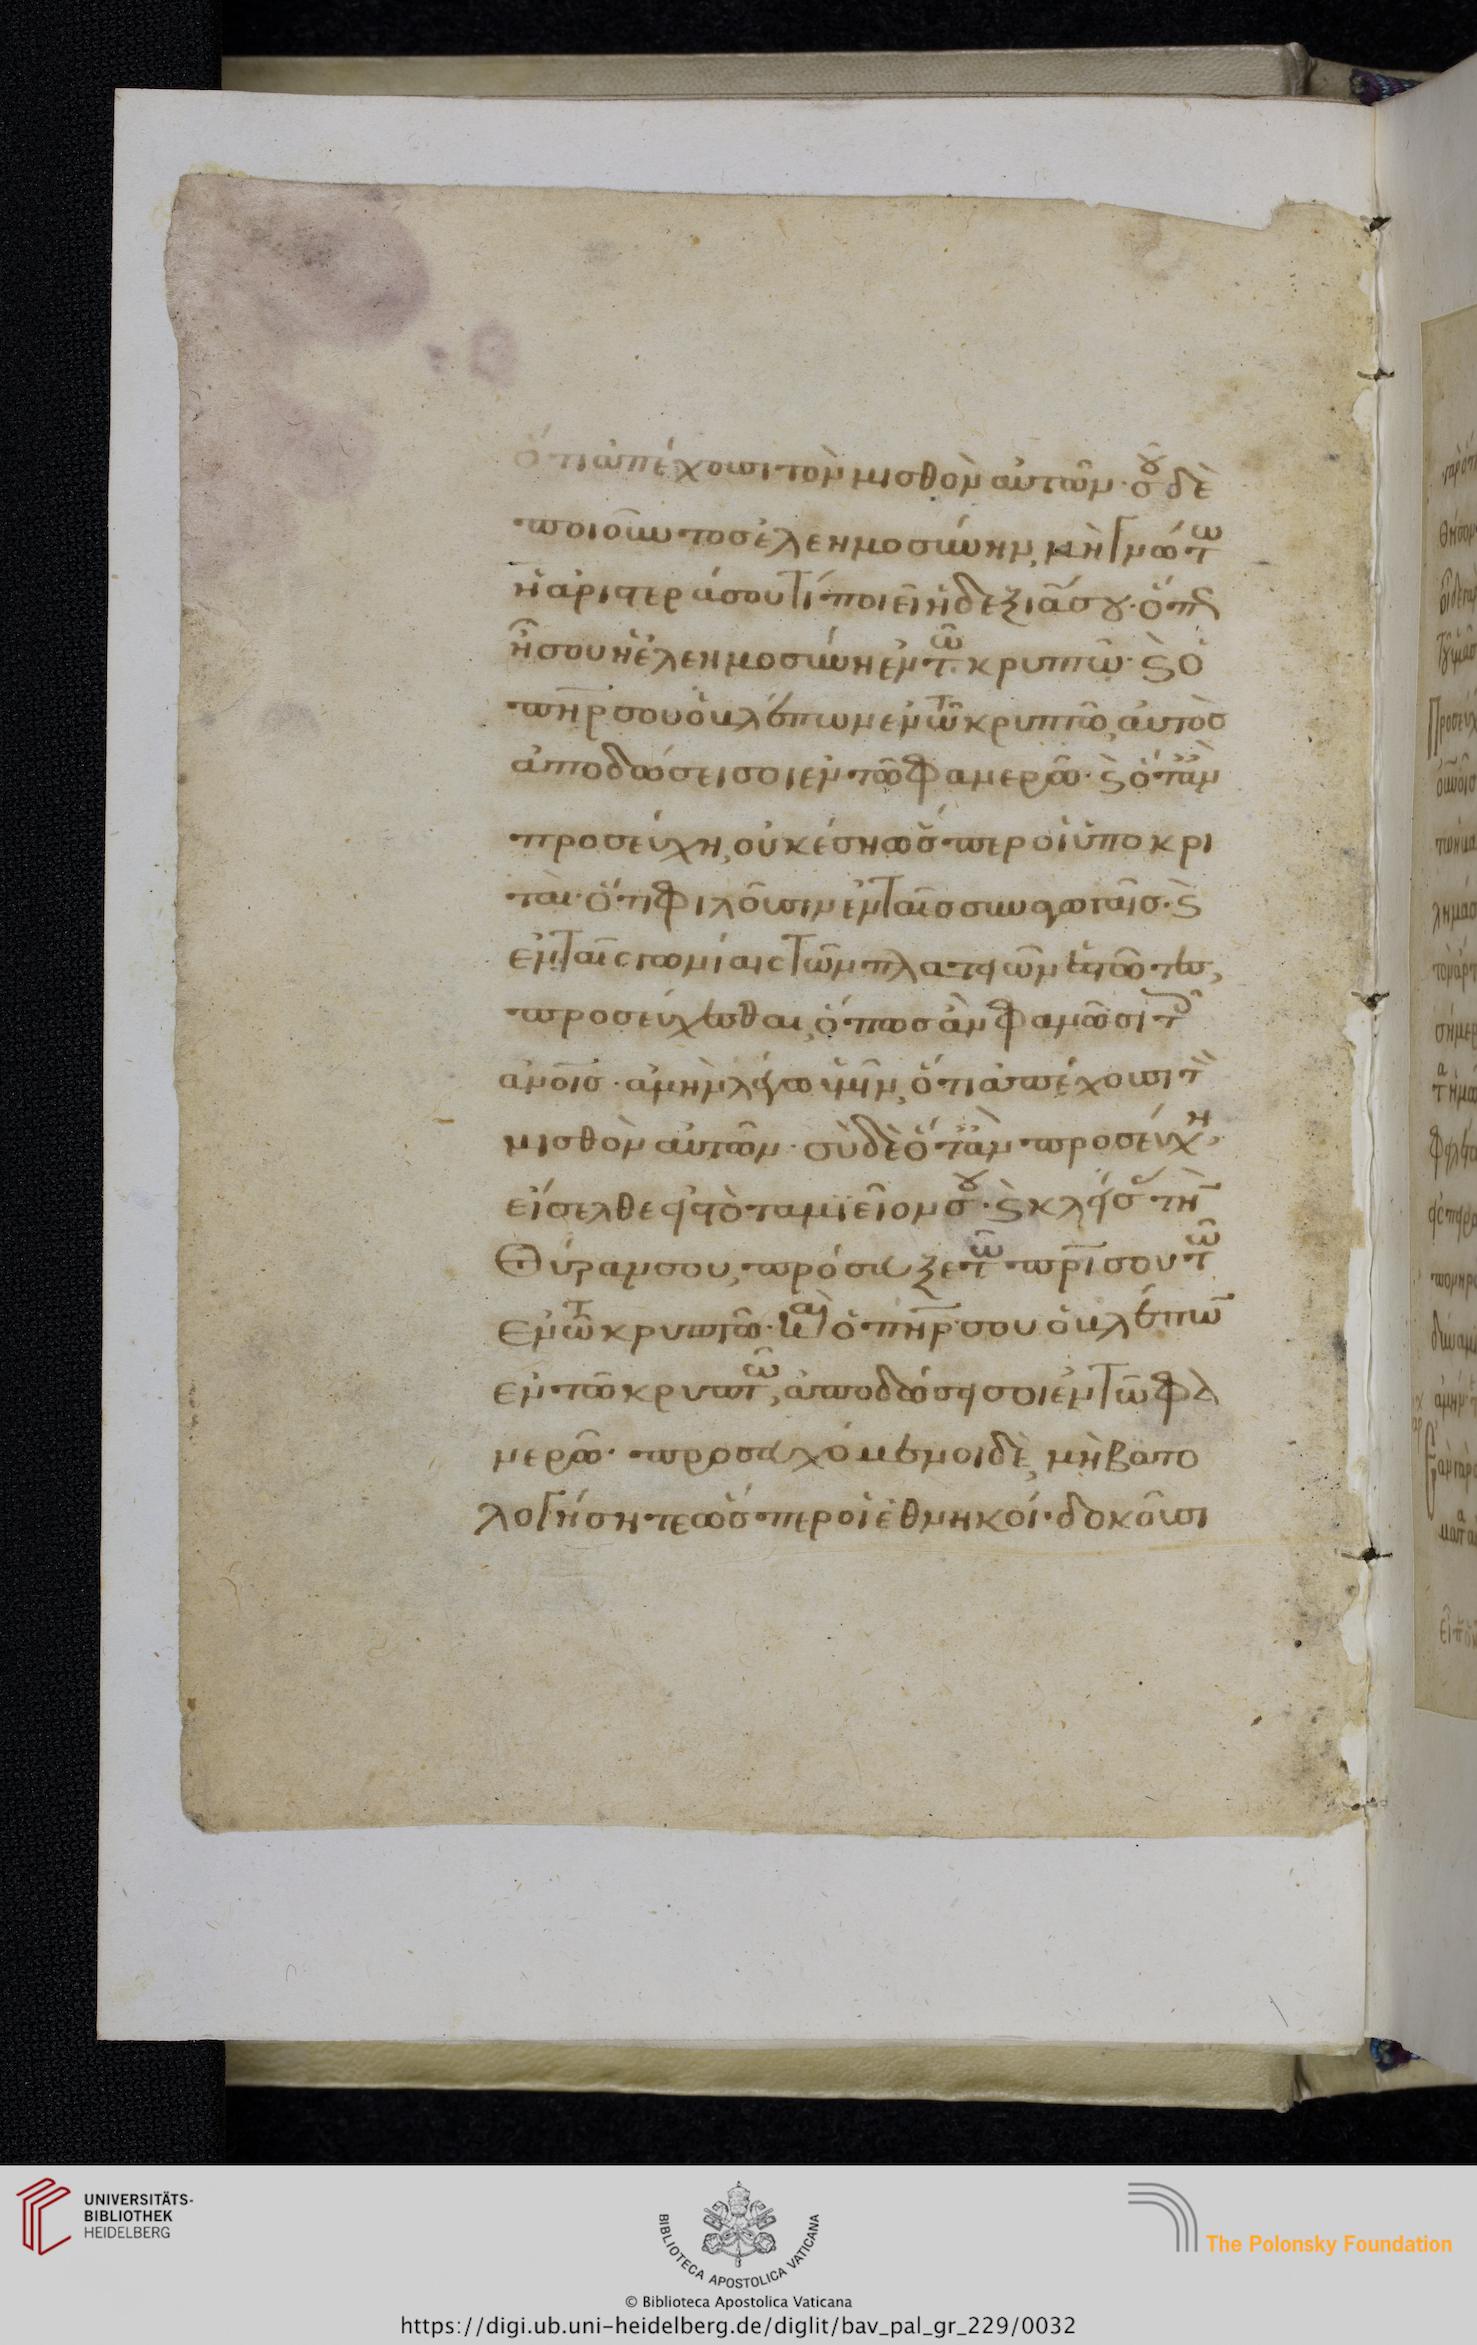 ὅτι ἀπέχουσι τὸν μισθὸν αὐτῶν· σοῦ δὲ
ποιοῦντος ἐλεημοσύνην, μὴ γνώτω
ἡ ἀριστερά σου τί ποιεῖ ἡ δεξιά σου· ὅπως
ᾖ σου ἡ ἐλεημοσύνη ἐν τῶ κρυπτῶ· ϗ ὁ
πηρ σου ὁ βλέπων ἐν τῶ κρυπτῶ, αὐτὸς
ἀποδώσει σοι ἐν τῶ φανερῶ· ϗ ὅταν
προσεύχη, οὐκ ἔση ὥσπερ οἱ ὑποκρι
ταί· ὅτι φιλοῦσιν ἐν ταῖς συναγωγαῖς· ϗ
ἐν ταῖς γωνίαις τῶν πλατειῶν ἑστῶτες,
προσεύχεσθαι, ὅπως ἂν φανῶσι τοῖς
ἀνοῖς· ἀμὴν λέγω ὑμῖν, ὅτι ἀπέχουσι τὸν
μισθὸν αὐτῶν· σὺ δὲ ὅταν προσεύχη,
εἴσελθε εἰς τὸ ταμιεῖον σου· ϗ κλείσας τὴν
θύραν σου, πρόσευξε τῶ πρι σου τῶ
ἐν τῶ κρυπτῶ· καὶ ὁ πηρ σου ὁ βλέπων
ἐν τῶ κρυπτῶ, ἀποδώσει σοι ἐν τῶ φα
νερῶ· προσευχόμενοι δὲ, μὴ βαττο
λογήσητε ὥσπερ οἱ ἐθνηκοί· δοκοῦσι
UNIVERSITÄTS-
BIBLIOTHEK
HEIDELBERG
BIBLIOTECA APOSTOLICA VATICANA
The Polonsky Foundation
© Biblioteca Apostolica Vaticana
https://digi.ub.uni-heidelberg.de/diglit/bav_pal_gr_229/0032